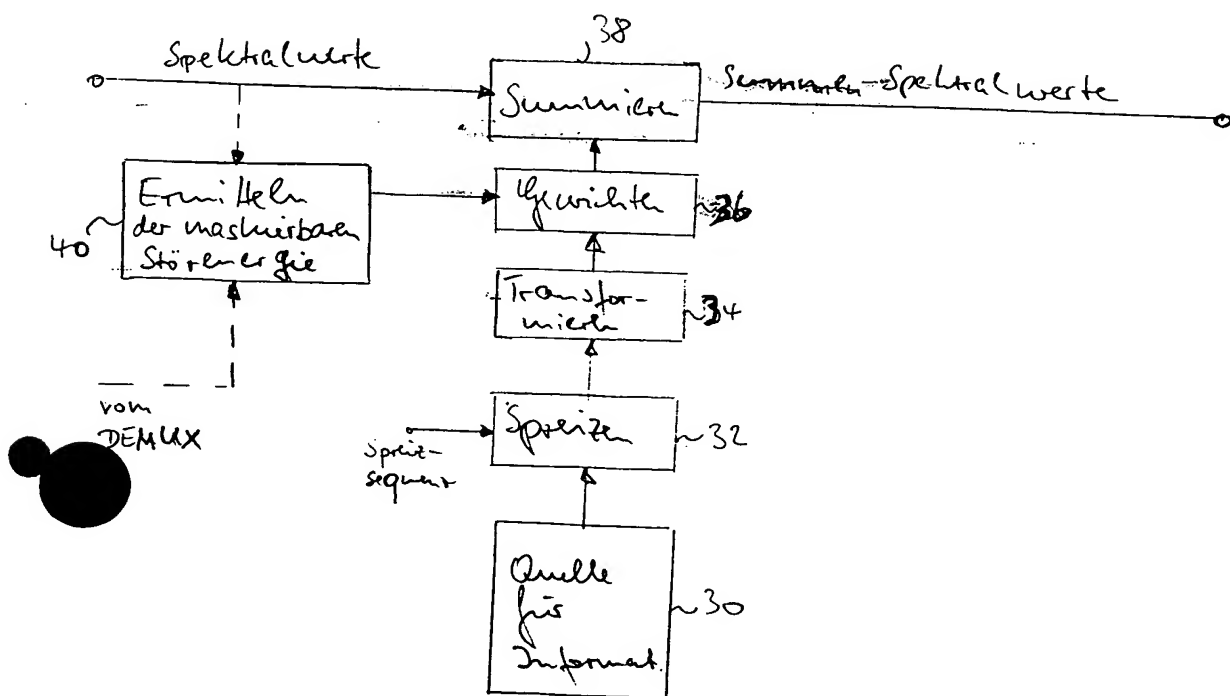 38
Spektralwerte
Summieren
Summen-Spektralwerte
Ermitteln
der maskierbaren
Störenergie
40
Gewichten
36
Transfor-
mieren
34
vom
DEMUX
Spreizen
32
Spreiz-
sequenz
Quelle
für
Informat.
30